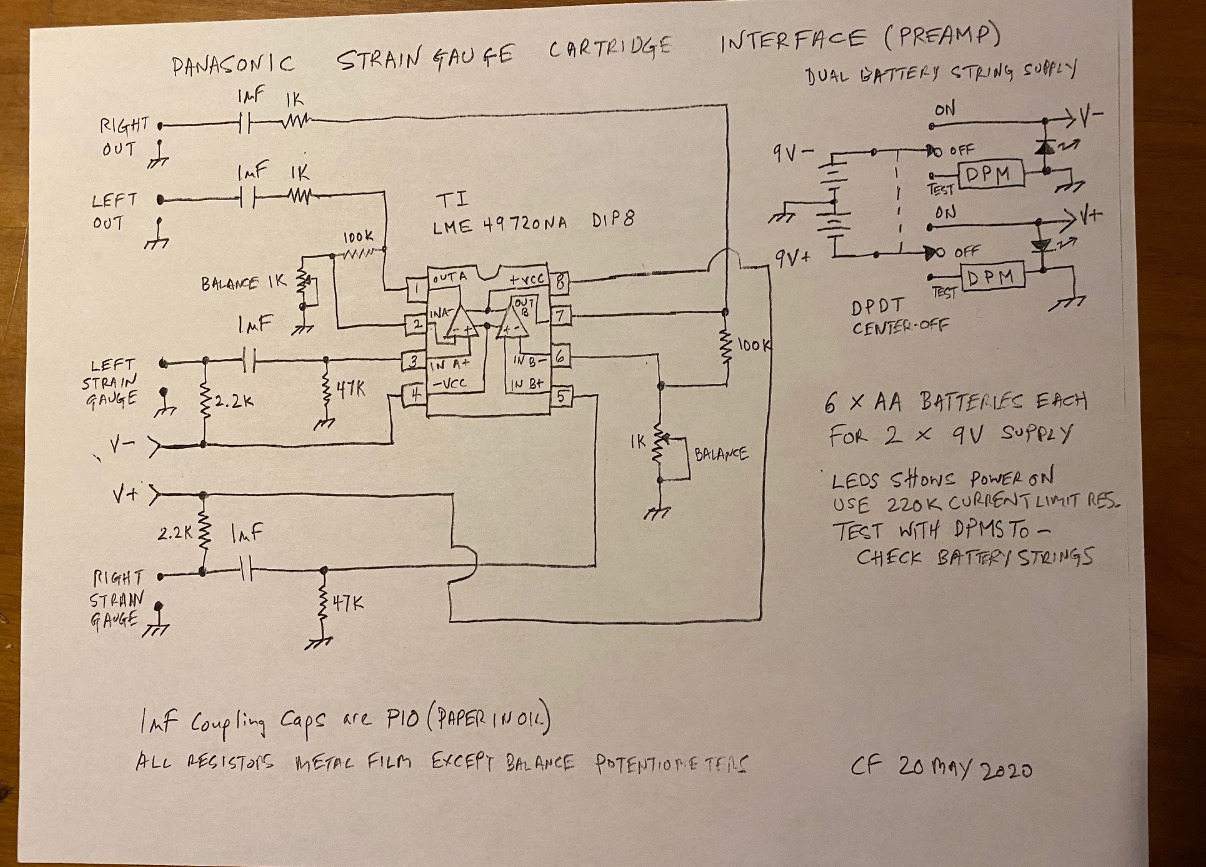 PANASONIC STRAIN GAUGE CARTRIDGE INTERFACE (PREAMP)
DUAL BATTERY STRING SUPPLY
RIGHT OUT
1µF
1K
LEFT OUT
1µF
1K
TI
LME 49720NA DIP8
100K
BALANCE 1K
1µF
LEFT STRAIN GAUGE
2.2K
47K
V-
V+
2.2K
1µF
RIGHT STRAIN GAUGE
47K
1
OUT A
+VCC
8
2
INA-
- +
+ -
OUT B
7
3
IN A+
IN B-
6
4
-VCC
IN B+
5
100K
1K
BALANCE
ON
V-
9V-
OFF
TEST
DPM
ON
V+
9V+
OFF
TEST
DPM
DPDT
CENTER-OFF
6 X AA BATTERIES EACH
FOR 2 X 9V SUPPLY
LEDS SHOWS POWER ON
USE 220K CURRENT LIMIT RES.
TEST WITH DPMS TO -
CHECK BATTERY STRINGS
1µF Coupling Caps are PIO (PAPER IN OIL)
ALL RESISTORS METAL FILM EXCEPT BALANCE POTENTIOMETERS
CF 20 MAY 2020